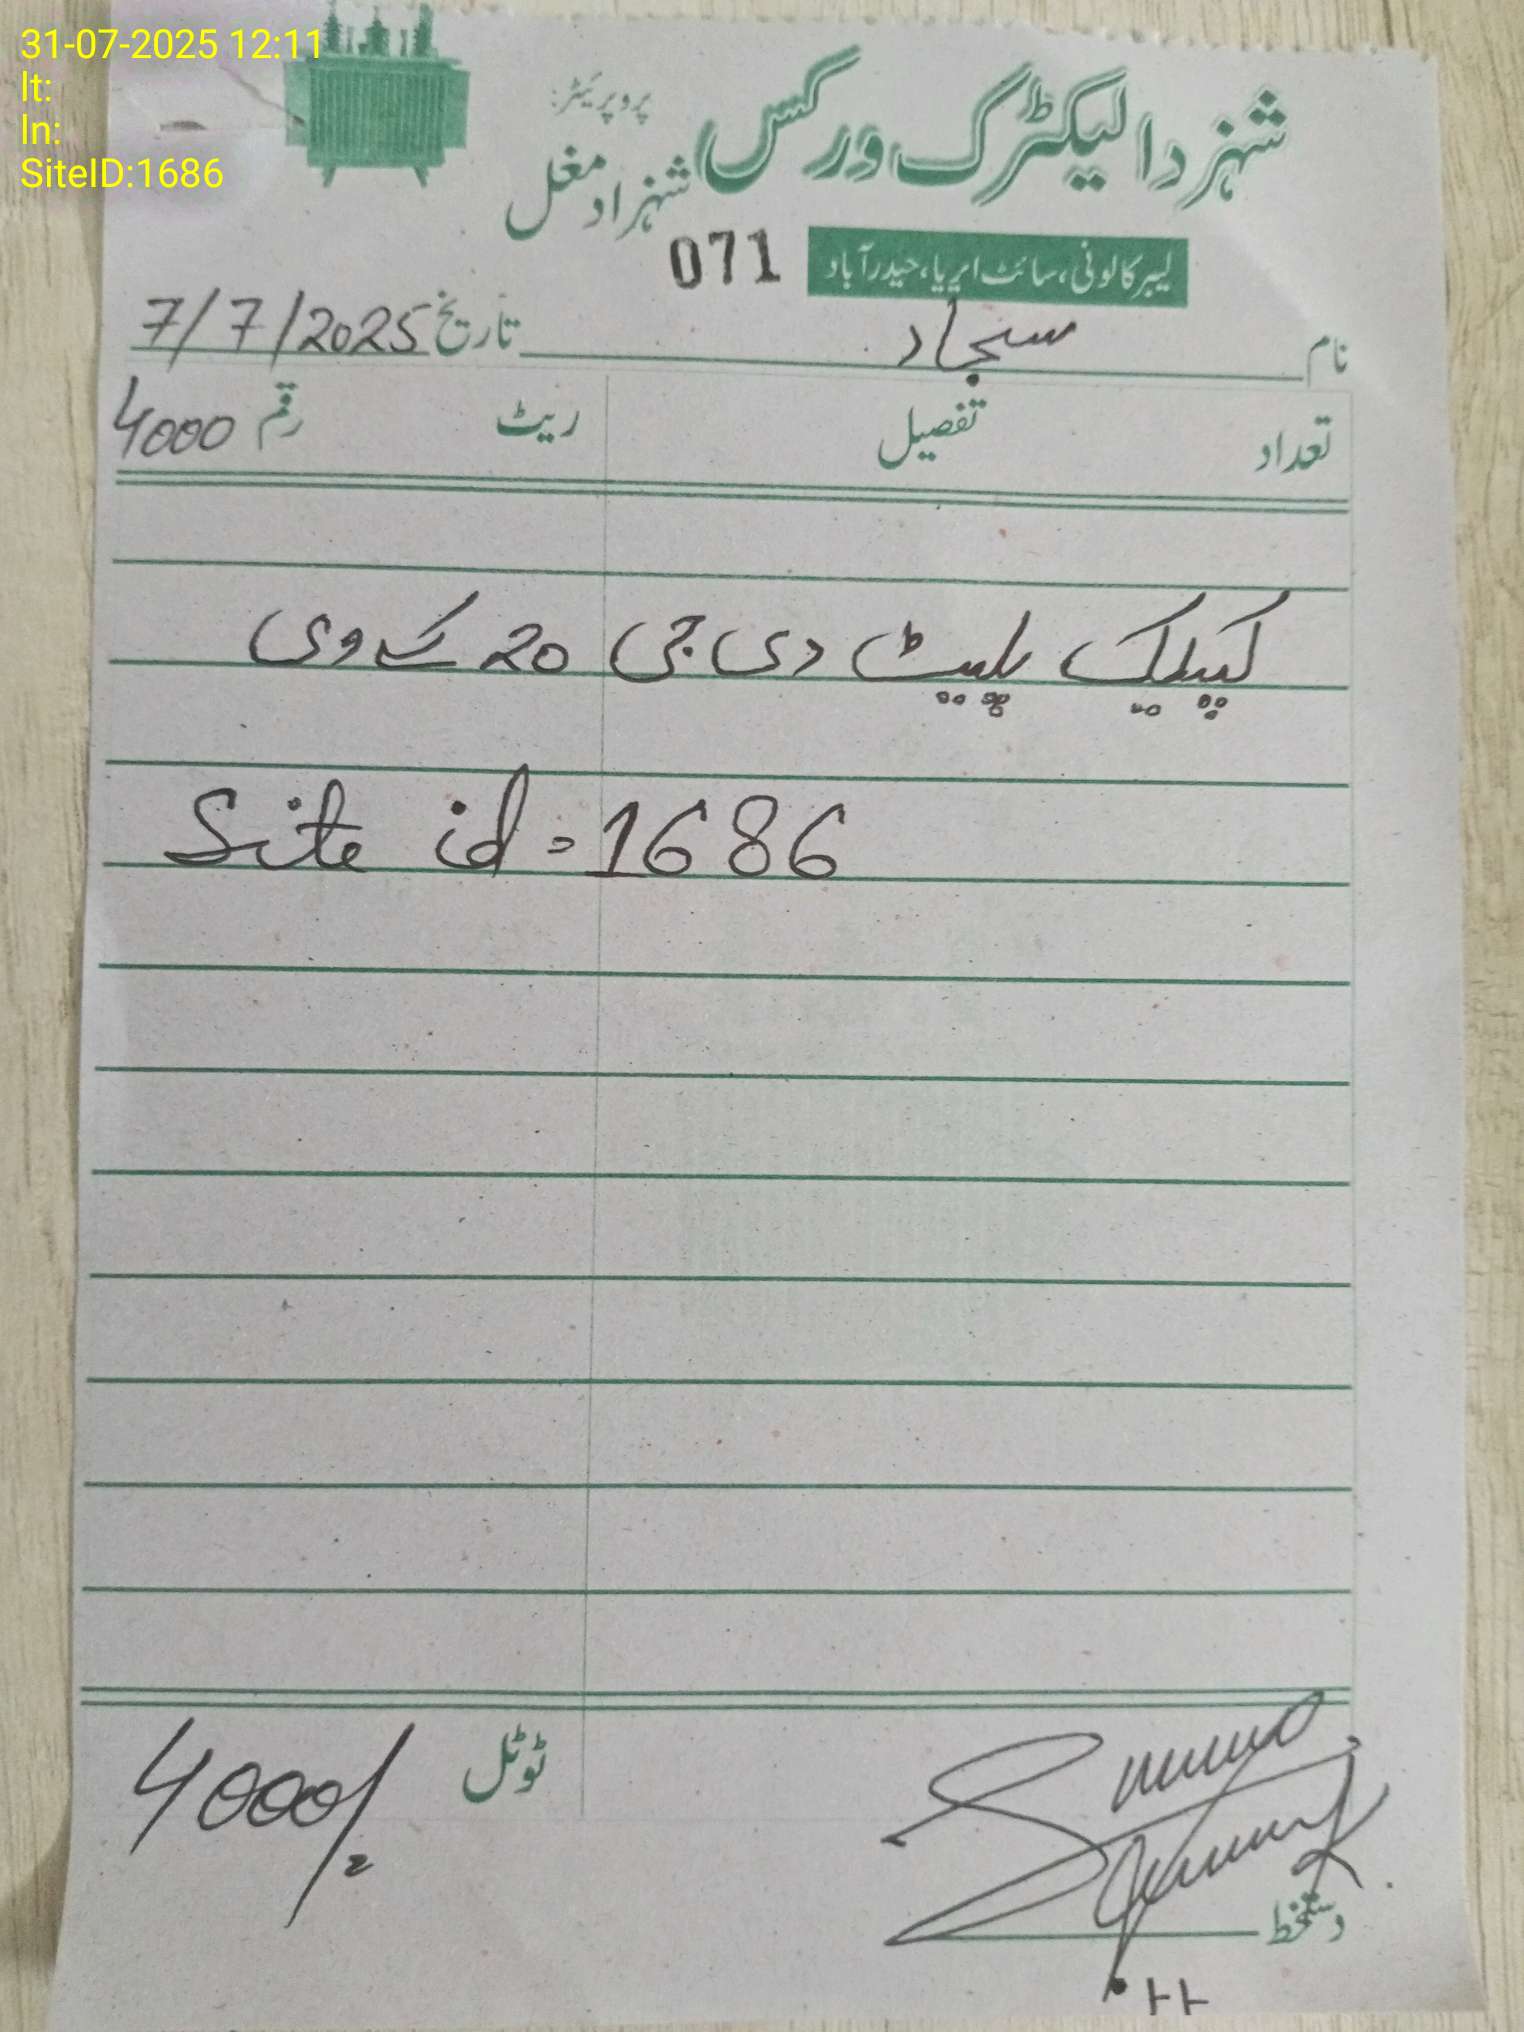 31-07-2025 12:11
lt:
ln:
SiteID:1686
شہزدا لیکٹرک ورکس
پروپریٹر:
شہزاد مغل
071
لیبر کالونی، سائٹ ایریا، حیدرآباد
نام سجاد تاریخ 7/7/2025
تعداد تفصیل ریٹ رقم 4000
پلیٹ دی جی 20 کے وی
Site id = 1686
ٹوٹل 4000/=
دستخط